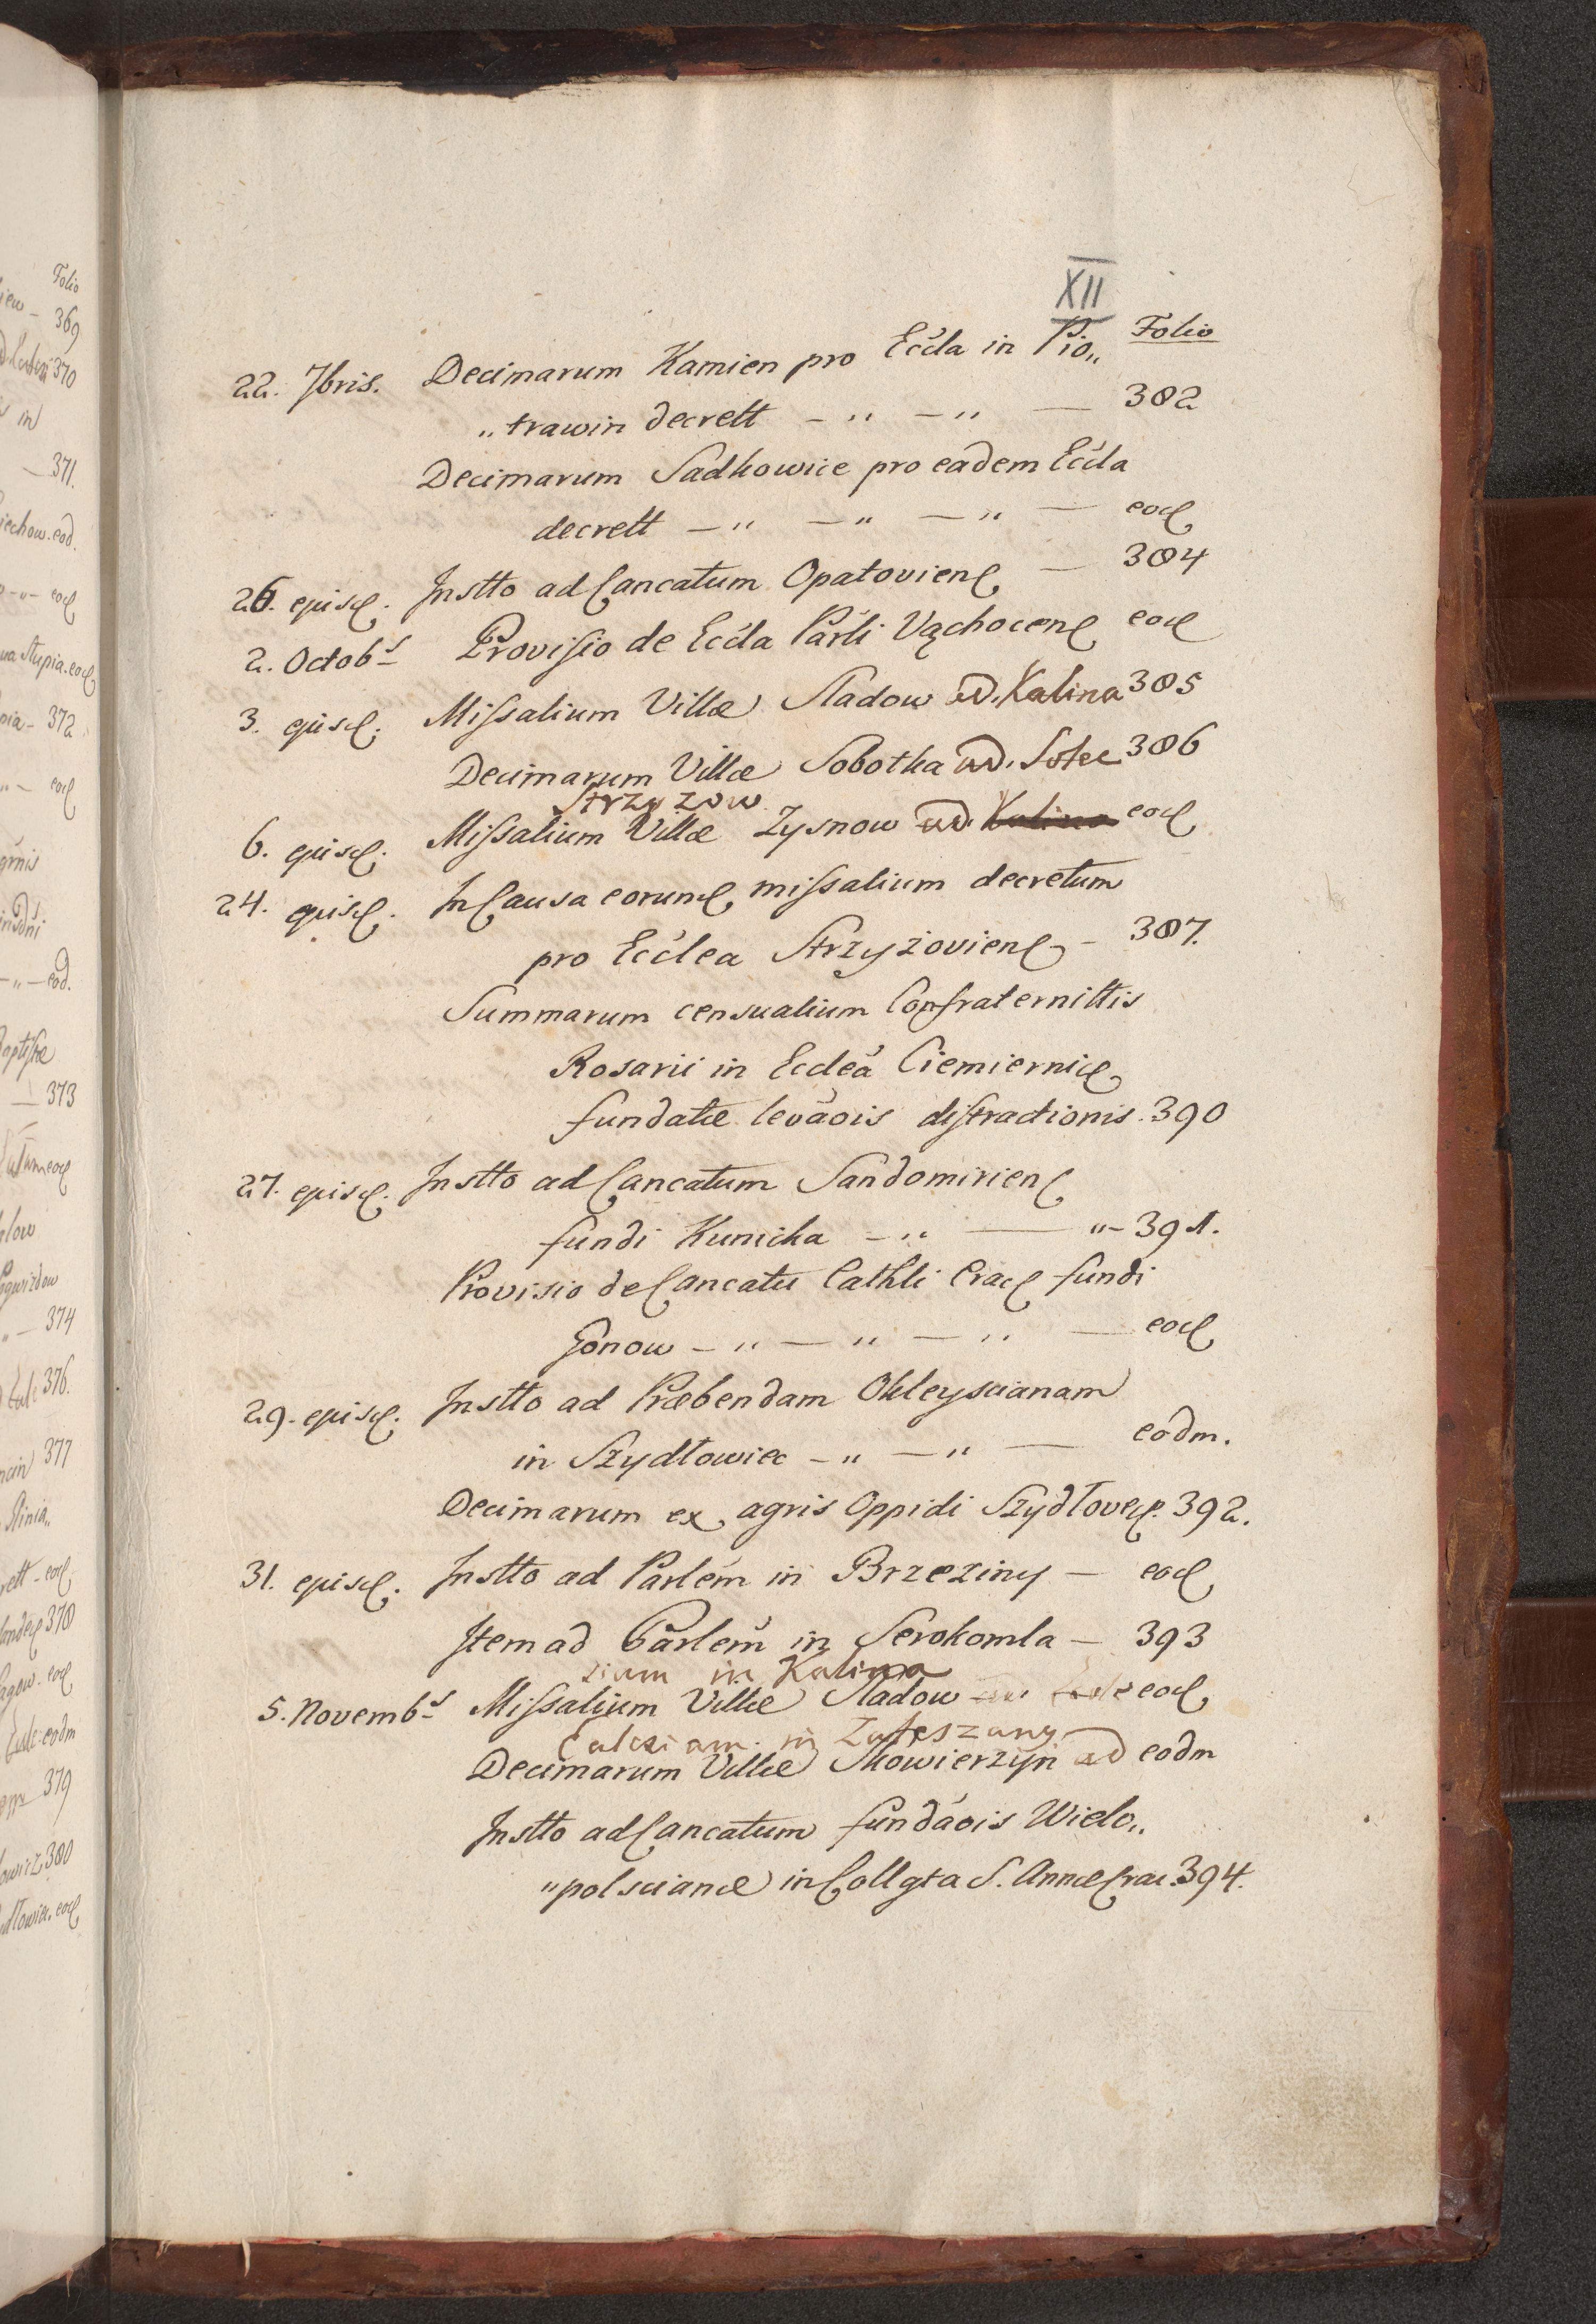 XII
Folio
22. 7bris. Decimarum Kamien pro Eccla in Pio„
„trawin decrett – „ – „ — 382
Decimarum Sadkowice pro eadem Eccla
decrett – „ – „ – „ — eod
26. ejusd. Instto ad Cancatum Opatoviens — 384
2. Octobs Provisio de Eccla Parli Vąchocens eod
3. ejusd. Missalium Villæ Sladow ad Kalina 385
Decimarum Villæ Sobotka ad. Solec 386
Strzyzow
6. ejusd. Missalium Villæ Zysnow ad. Kalina eod
24. ejusd. In Causa eorund missalium decretum
pro Ecclea Strzyżoviens – 387.
Summarum censualium Confraternittis
Rosarii in Ecclea Ciemiernic
fundatæ levaois distractionis. 390
27. ejusd. Instto ad Cancatum Sandomiriens
fundi Kunicka – „ — „ – 391.
Provisio de Cancatu Cathli Crac fundi
Gonow – „ — „ — „ — eod
29. ejusd. Instto ad Præbendam Okleyscianam
in Szydłowiec – „ — „ — eodm.
Decimarum ex agris Oppidi Szydłovec. 392.
31. ejusd. Instto ad Parlem in Brzeziny — eod
Item ad Parlem in Serokomla — 393
in Kalina
5. Novembs Missalium Villæ Sladow eod
in Zaleszany
Decimarum Villæ Skowierzyn ad eodm
Instto ad Cancatum fundaois Wielo„
„polscianæ in Collgta S. Annæ Crac. 394.
Folio
369
370
in
371.
iechow. eod.
eod
Slupia. eod
372
eod
eod.
373
eod
374
376.
377
eod
378
eod
eodm
379
380
eod